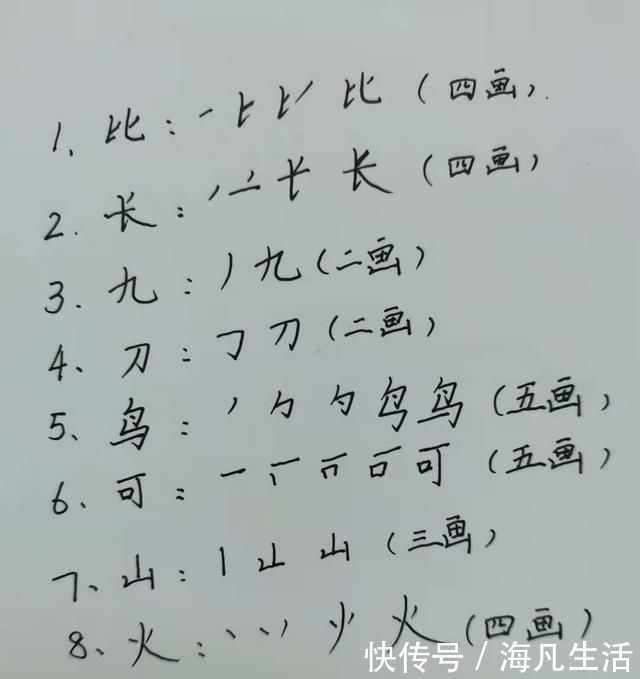 1、比：一 上 比 比（四画）
2、长：ノ 二 长 长（四画）
3、九：丿九（二画）
4、刀：㇆刀（二画）
5、鸟：丿 勹 勺 鸟 鸟（五画）
6、可：一 丆 可（五画）
7、山：丨 山（三画）
8、火：丶 丷 火（四画）
快传号／海凡生活